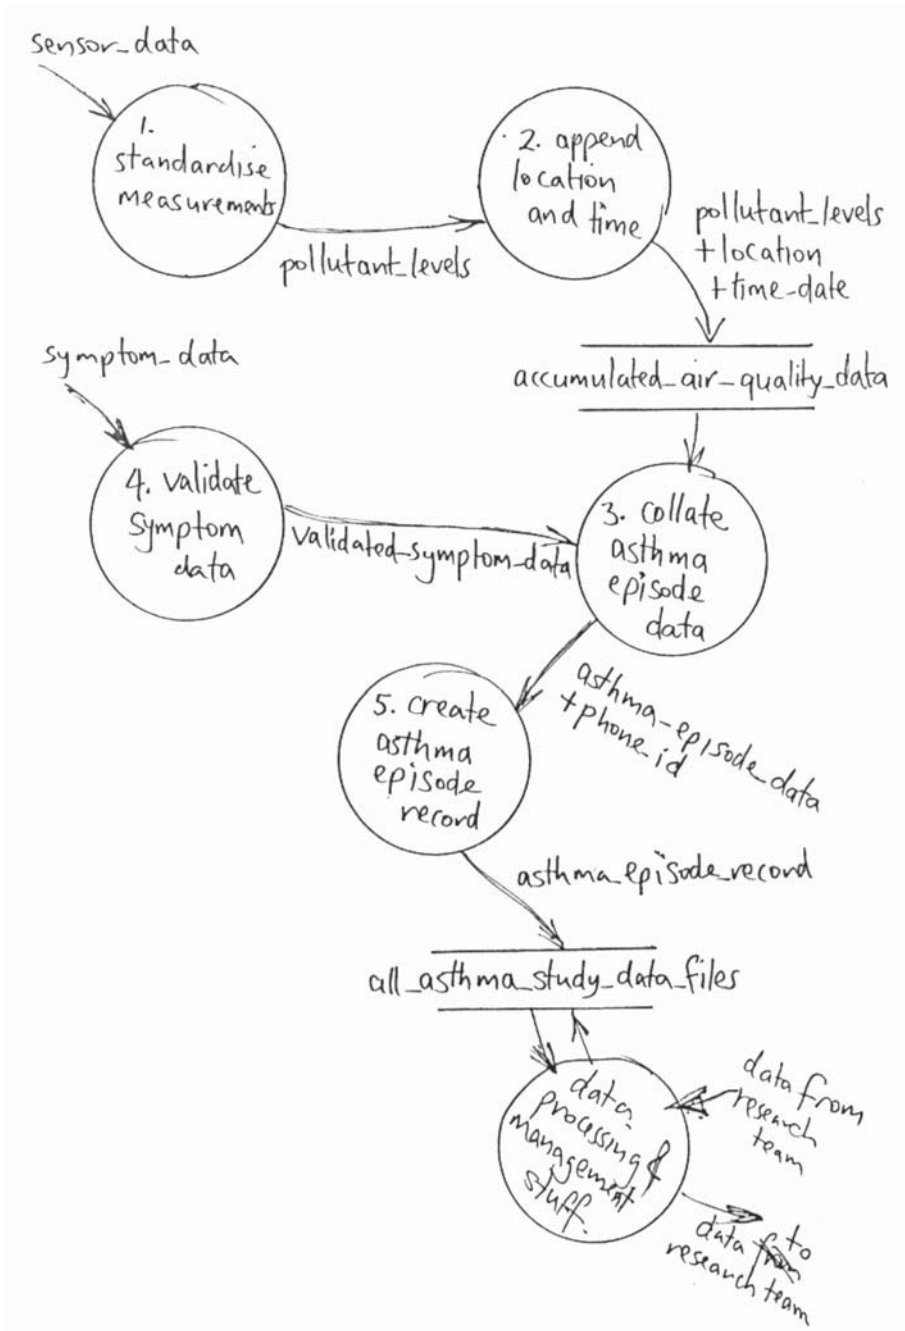 sensor_data
1.
standardise
measurements
pollutant_levels
2. append
location
and time
pollutant_levels
+location
+time_date
accumulated_air_quality_data
symptom_data
4. validate
symptom
data
validated_symptom_data
3. collate
asthma
episode
data
asthma_episode_data
+phone_id
5. create
asthma
episode
record
asthma_episode_record
all_asthma_study_data_files
data
processing &
management
stuff.
data from
research
team
to
data from
research team